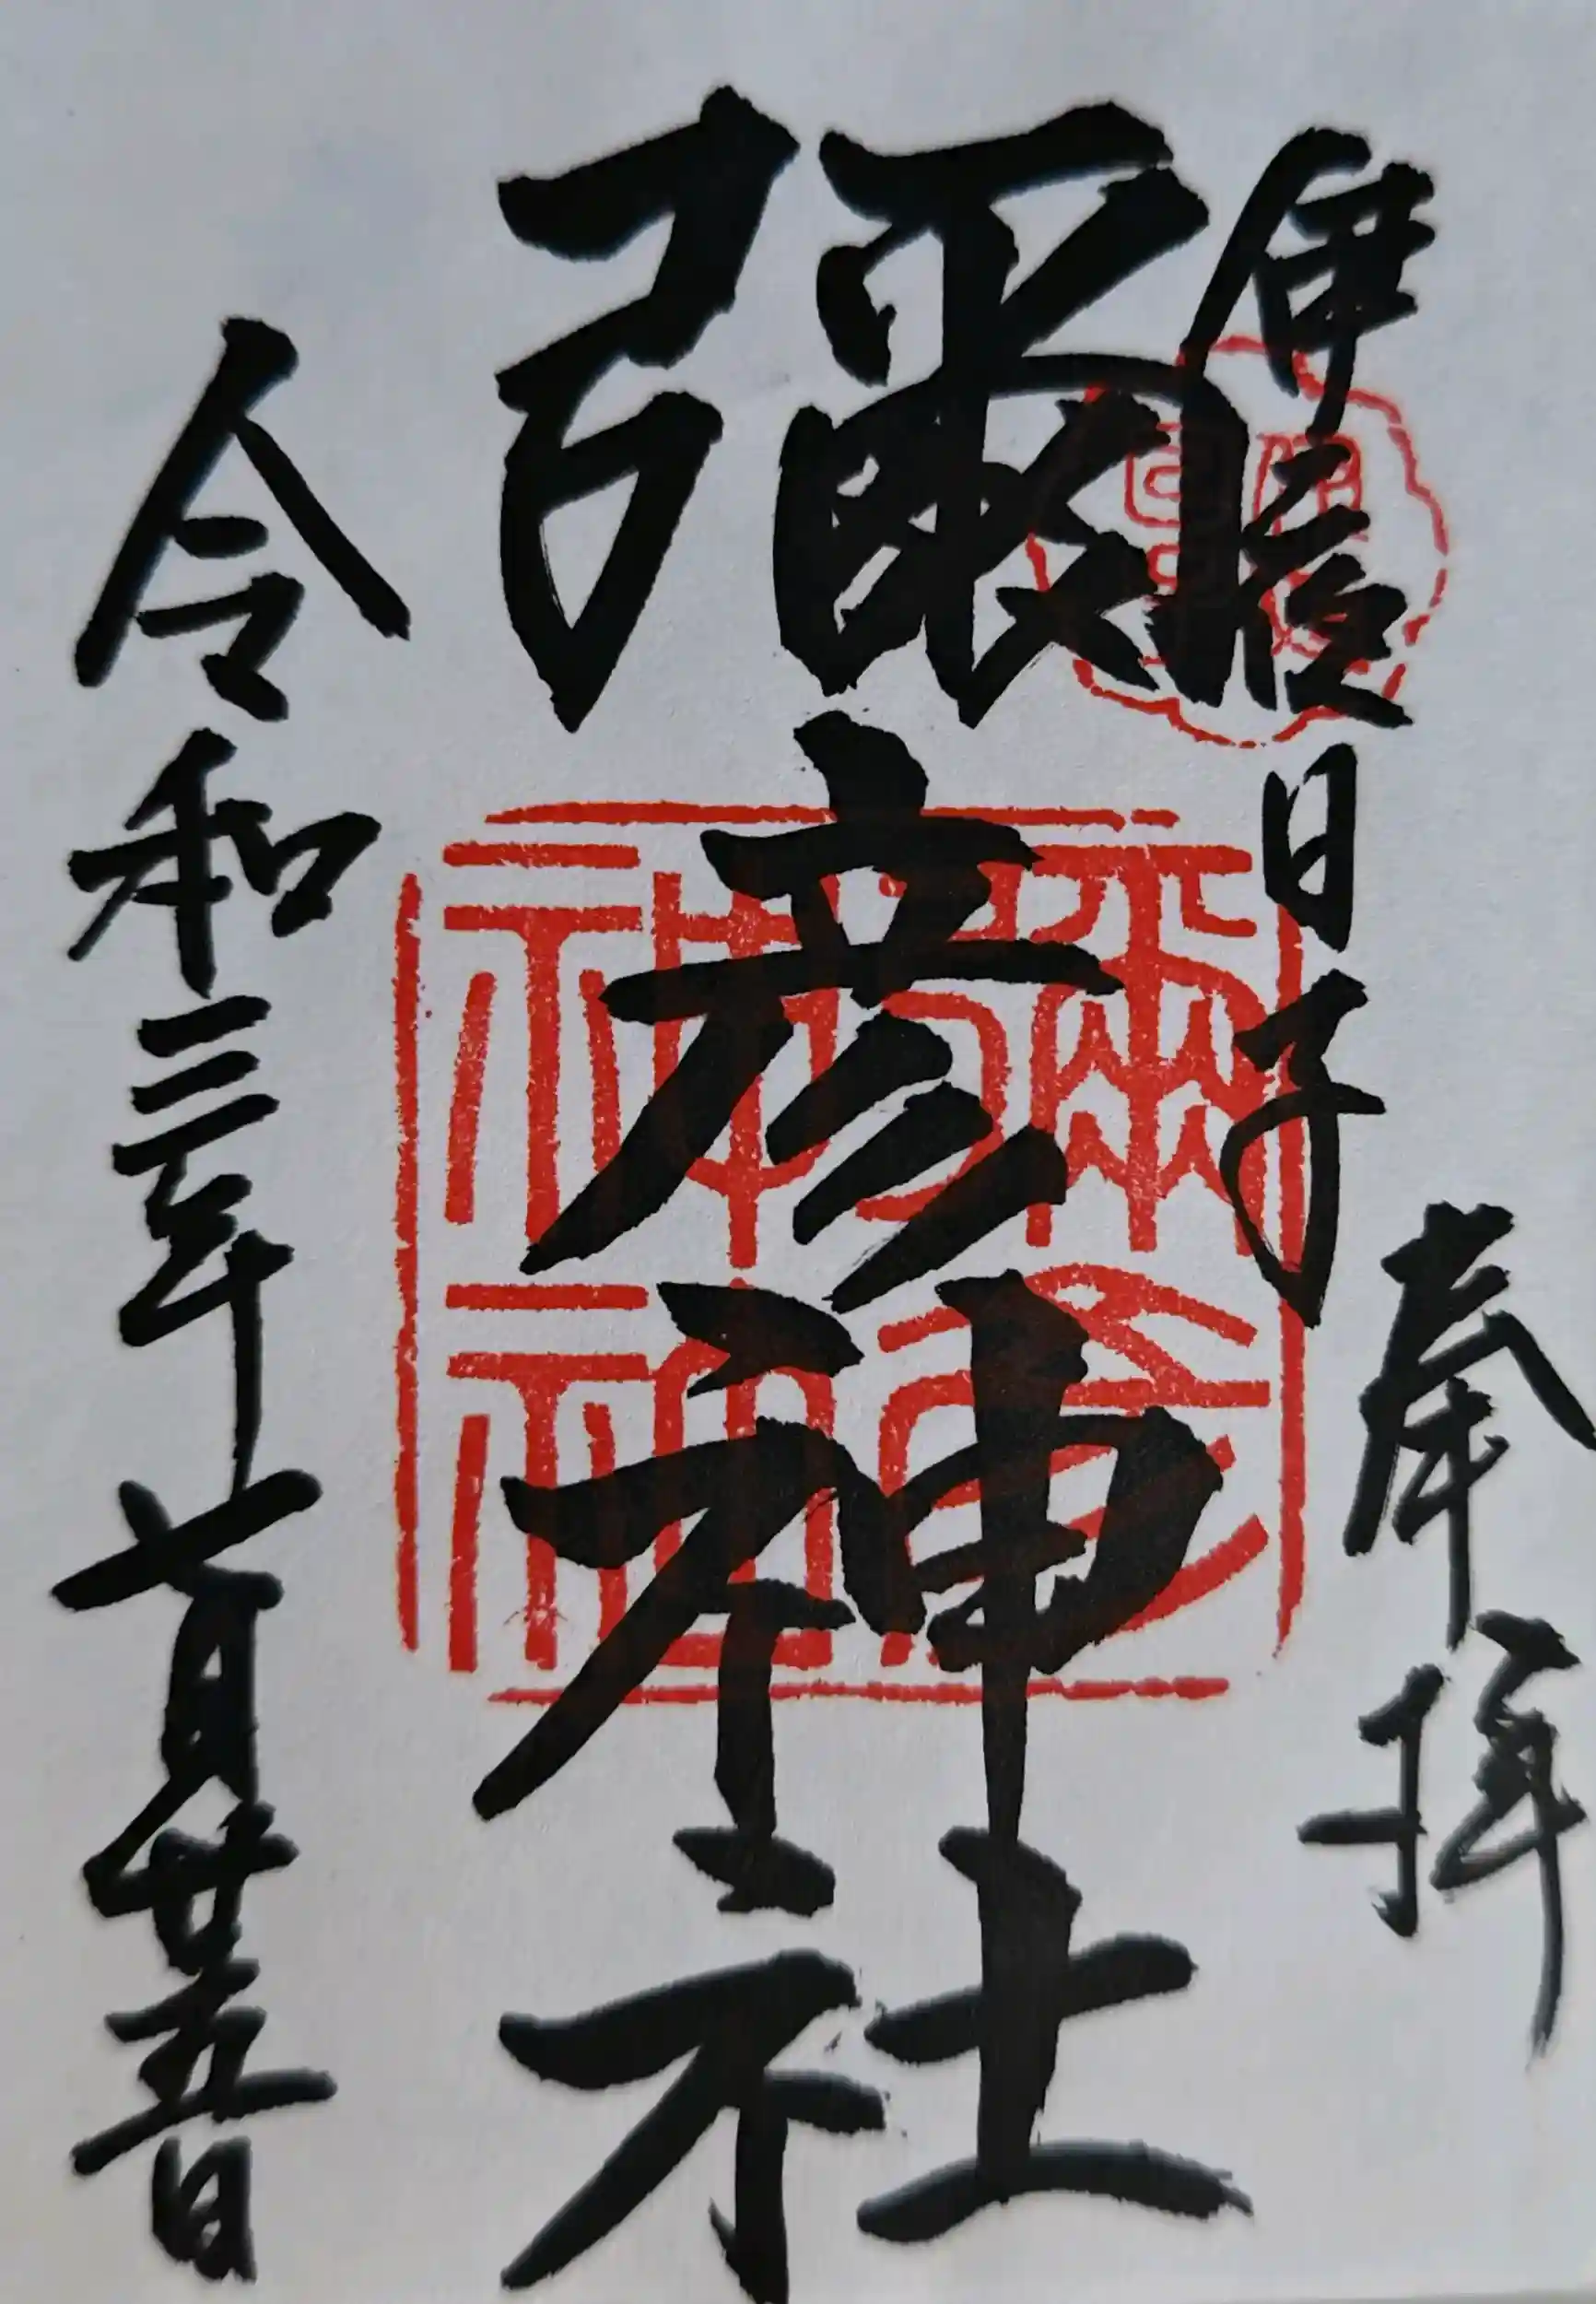 奉拝
伊夜日子
彌彦神社
彌彦神社
令和三年七月廿五日